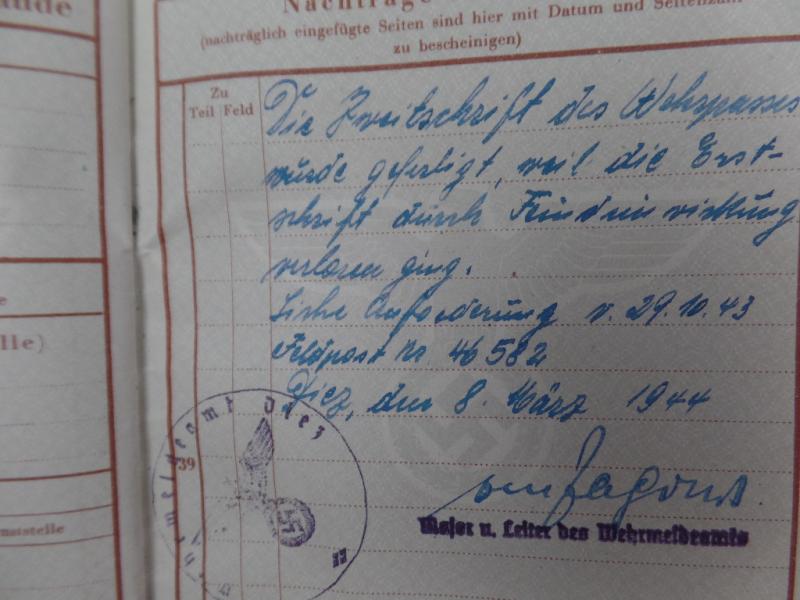 ände
e
lle)
nststelle
Nachträge
(nachträglich eingefügte Seiten sind hier mit Datum und Seitenzahl
zu bescheinigen)
Zu
Teil Feld
Die Zweitschrift des Wehrpasses
wurde gefertigt, weil die Erst-
schrift durch Feindeinwirkung
verloren ging.
Siehe Anforderung v. 29.10.43
Feldpost Nr. 46 582
Diez, den 8. März 1944
39
Wehrmeldeamt Diez
Major u. Leiter des Wehrmeldeamts